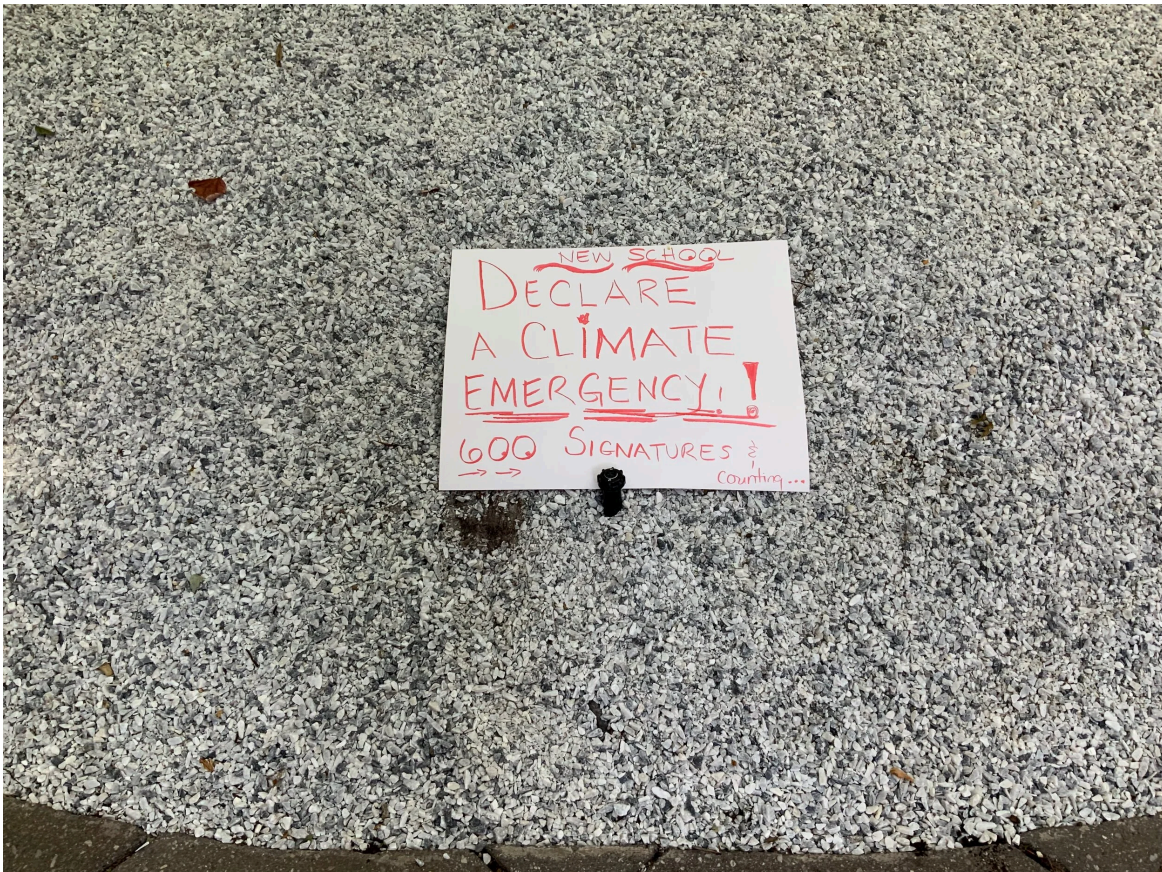 NEW SCHOOL
DECLARE
A CLIMATE
EMERGENCY!!
600 SIGNATURES &
counting...